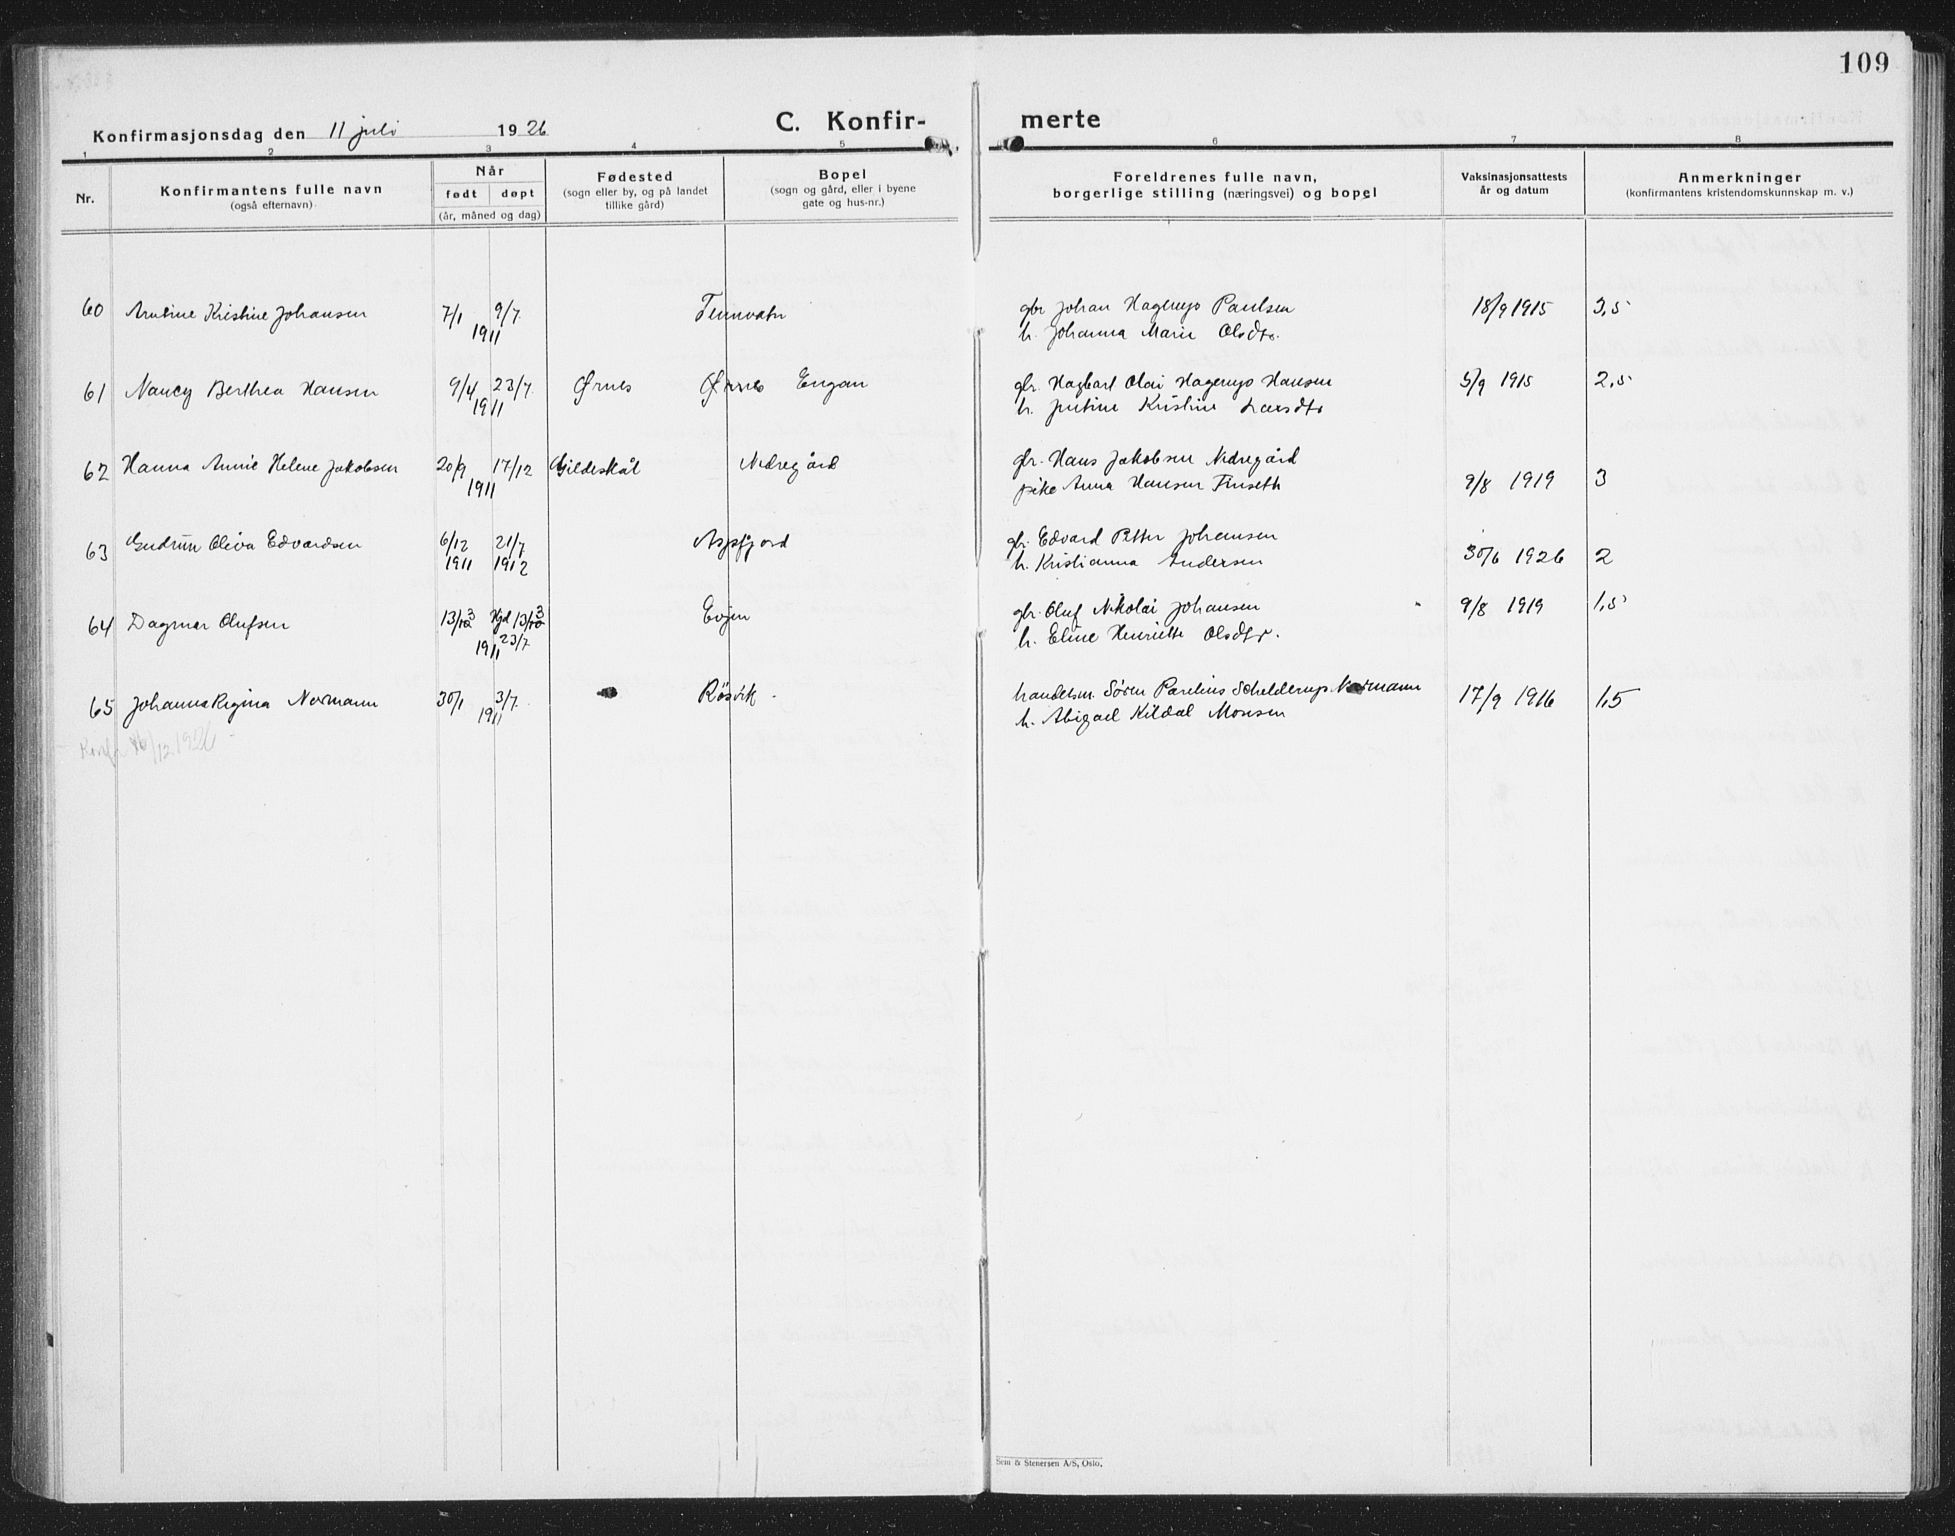 109
Konfirmasjonsdag den 11 juli 1926 C. Konfir- merte
1 2 3 4 5 6 7 8
Nr. Konfirmantens fulle navn (også efternavn) Når født døpt (år, måned og dag) Fødested (sogn eller by, og på landet tillike gård) Bopel (sogn og gård, eller i byene gate og hus-nr.) Foreldrenes fulle navn, borgerlige stilling (næringsvei) og bopel Vaksinasjonsattests år og datum Anmerkninger (konfirmantens kristendomskunnskap m. v.)
60 Kristine Johansen 7/1 9/7 gbr Johan Hagerup Paulsen 18/9 1915 3,5
1911 h. Johanna Marie Olsdtr.
61 Nancy Berthea Hansen 9/4 23/7 Ørnes Ørnes Engan gbr. Hagbart Olai Hagerup Hansen 5/9 1915 2,5
1911 h. Justine Kristine Larsdtr
62 Hanna Annie Helene Jakobsen 20/9 17/12 Gildeskål Nedregård gbr. Hans Jakobsen Nedregård
1911 pike Anna Hansen Finseth 9/8 1919 3
63 Gudrun Oliva Edvardsen 6/12 21/7 Aspfjord gbr. Edvard Petter Johansen
1911 1912 h. Kristianna Andersen 30/6 1926 2
64 Dagmar Olufsen 13/3 Hjd 13/3 Evjen gbr. Oluf Nikolai Johansen 9/8 1919 1,5
1911 23/7 h. Eline Henriette Olsdtr.
65 Johanna Regina Normann 30/1 3/7 Røsvik. handelsm. Søren Parelius Schelderup Normann 17/9 1916 1,5
1911 h. Abigael Kildal Monsen
Konf. /12 1926
Sem & Stenersen A/S, Oslo.